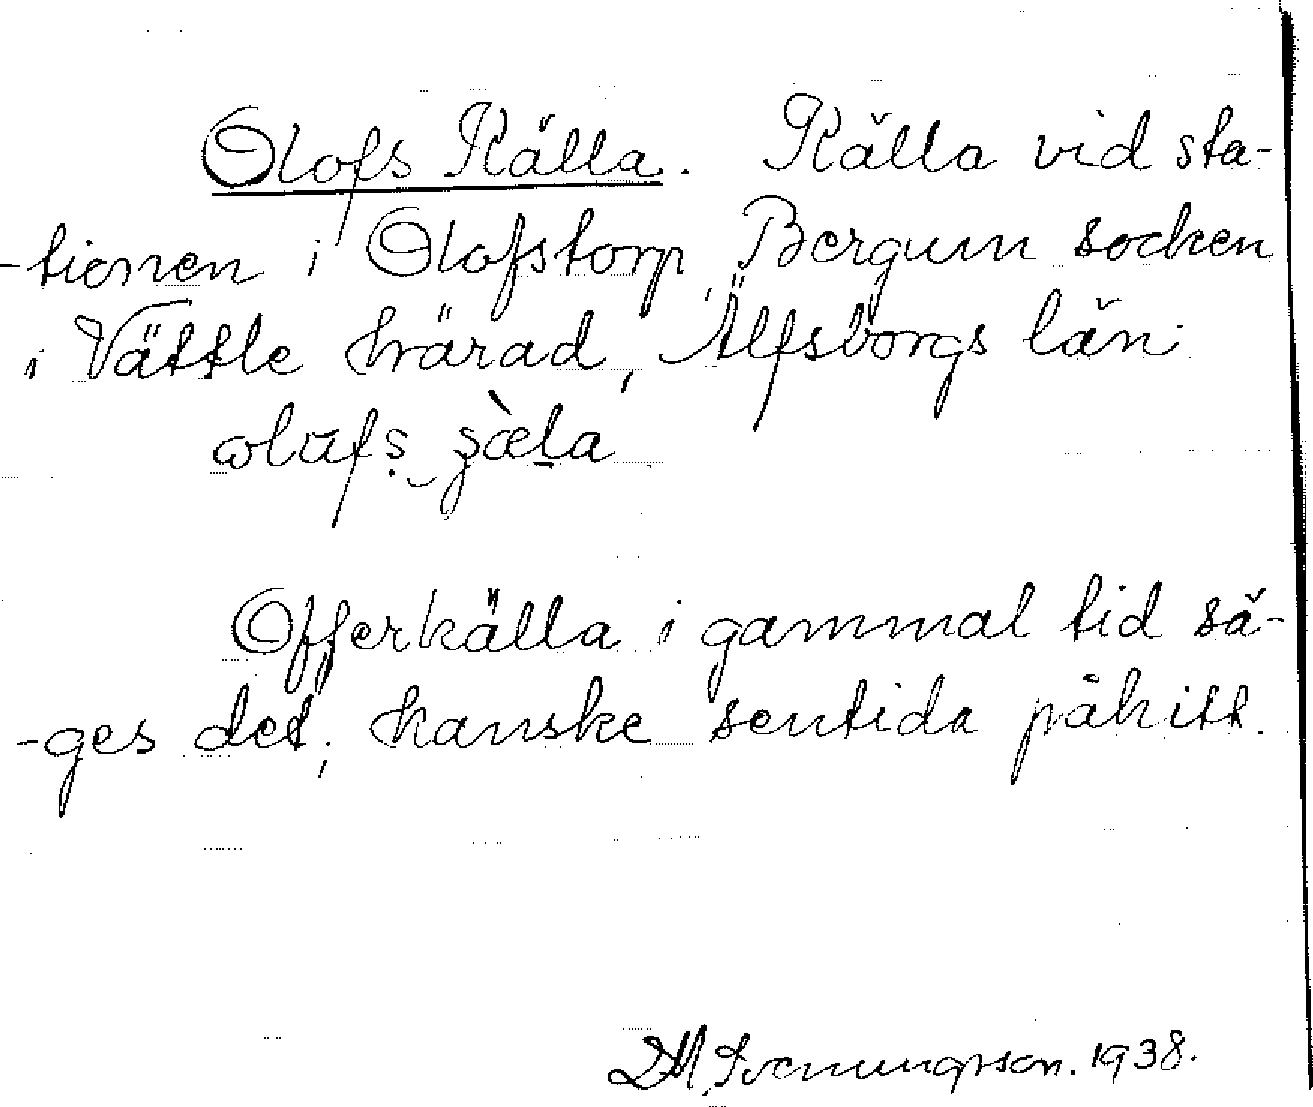 Olofs Källa. Källa vid sta-
-tionen i Olofstorp, Bergum socken
i Vättle härad, Älfsborgs län.
Offerkälla i gammal tid sä-
-ges det, kanske sentida påhitt.
Svenungsson. 1938.